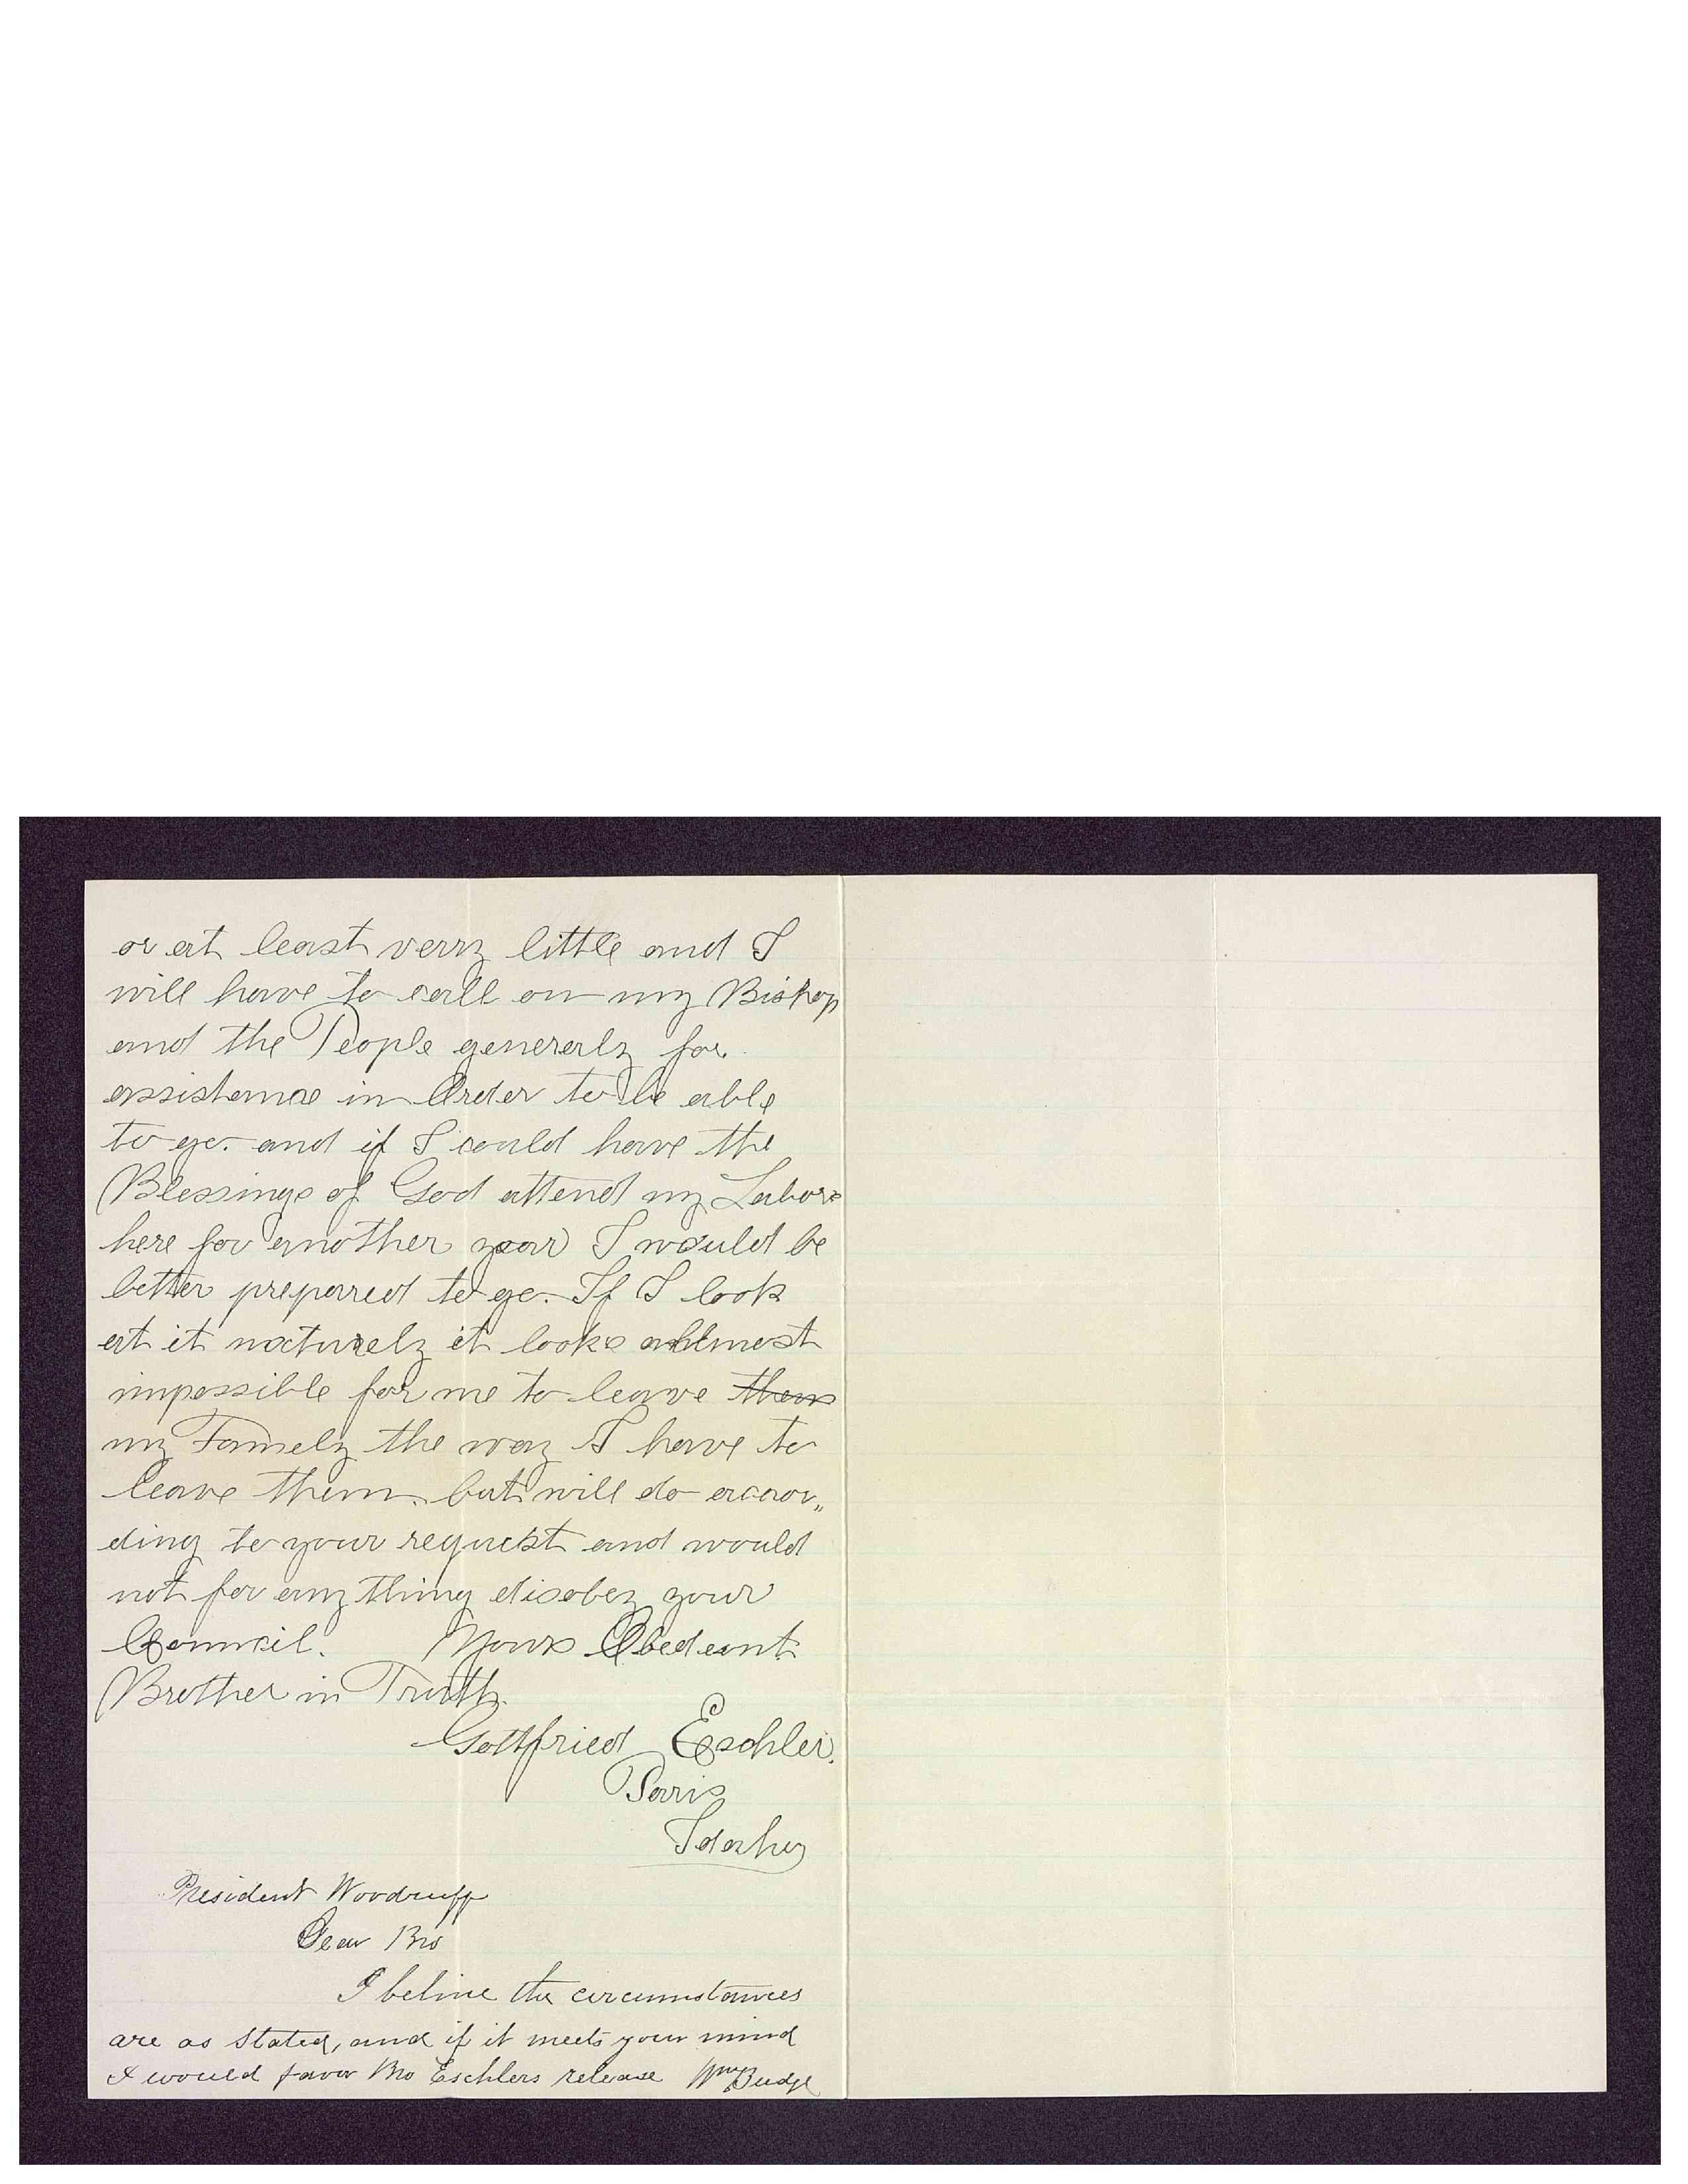 or at least verry little and I
will have to call on my Bishop
and the People generaly for
assistance in Order to be able
to go. and if I could have the
Blessings of God attend my Labors
here for another year I would be
better prepared to go. If I look
at it naturely it looks allmost
impossible for me to leave them
my Famely the way I have to
leave them. but will do accor„
ding to your requst and would
not for any thing disobey your
Council. Yours Obedeant
Brother in Truth.
Gottfried Eschler.
Paris
Idaho
President Woodruff
Dear Bro
I belive the circumstances
are as stated, and if it meets your mind
I would favor Bro Eschlers release Wm Budge